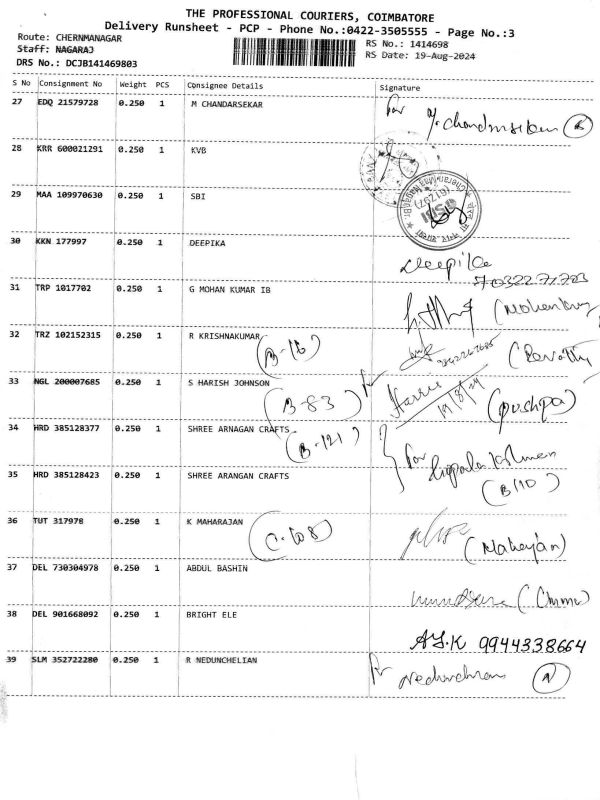 THE PROFESSIONAL COURIERS, COIMBATORE
Delivery Runsheet - PCP - Phone No.:0422-3505555 - Page No.:3
Route: CHERNMANAGAR
RS No.: 1414698
Staff: NAGARAJ
RS Date: 19-Aug-2024
DRS No.: DCJB141469803
S No Consignment No Weight PCS Consignee Details Signature
27 EDQ 21579728 0.250 1 M CHANDARSEKAR
for
28 KRR 600021291 0.250 1 KVB
29 MAA 109970630 0.250 1 SBI
SBI
30 KKN 177997 0.250 1 DEEPIKA
Deepika
31 TRP 1017702 0.250 1 G MOHAN KUMAR IB
32 TRZ 102152315 0.250 1 R KRISHNAKUMAR
(B-16)
33 NGL 200007685 0.250 1 S HARISH JOHNSON
(B-83)
19/8/24
(pushpa)
34 HRD 385128377 0.250 1 SHREE ARNAGAN CRAFTS
(B-121)
for
35 HRD 385128423 0.250 1 SHREE ARANGAN CRAFTS
(B110)
36 TUT 317978 0.250 1 K MAHARAJAN
(C-108)
37 DEL 730304978 0.250 1 ABDUL BASHIN
38 DEL 901668092 0.250 1 BRIGHT ELE
9944338664
39 SLM 352722280 0.250 1 R NEDUNCHELIAN